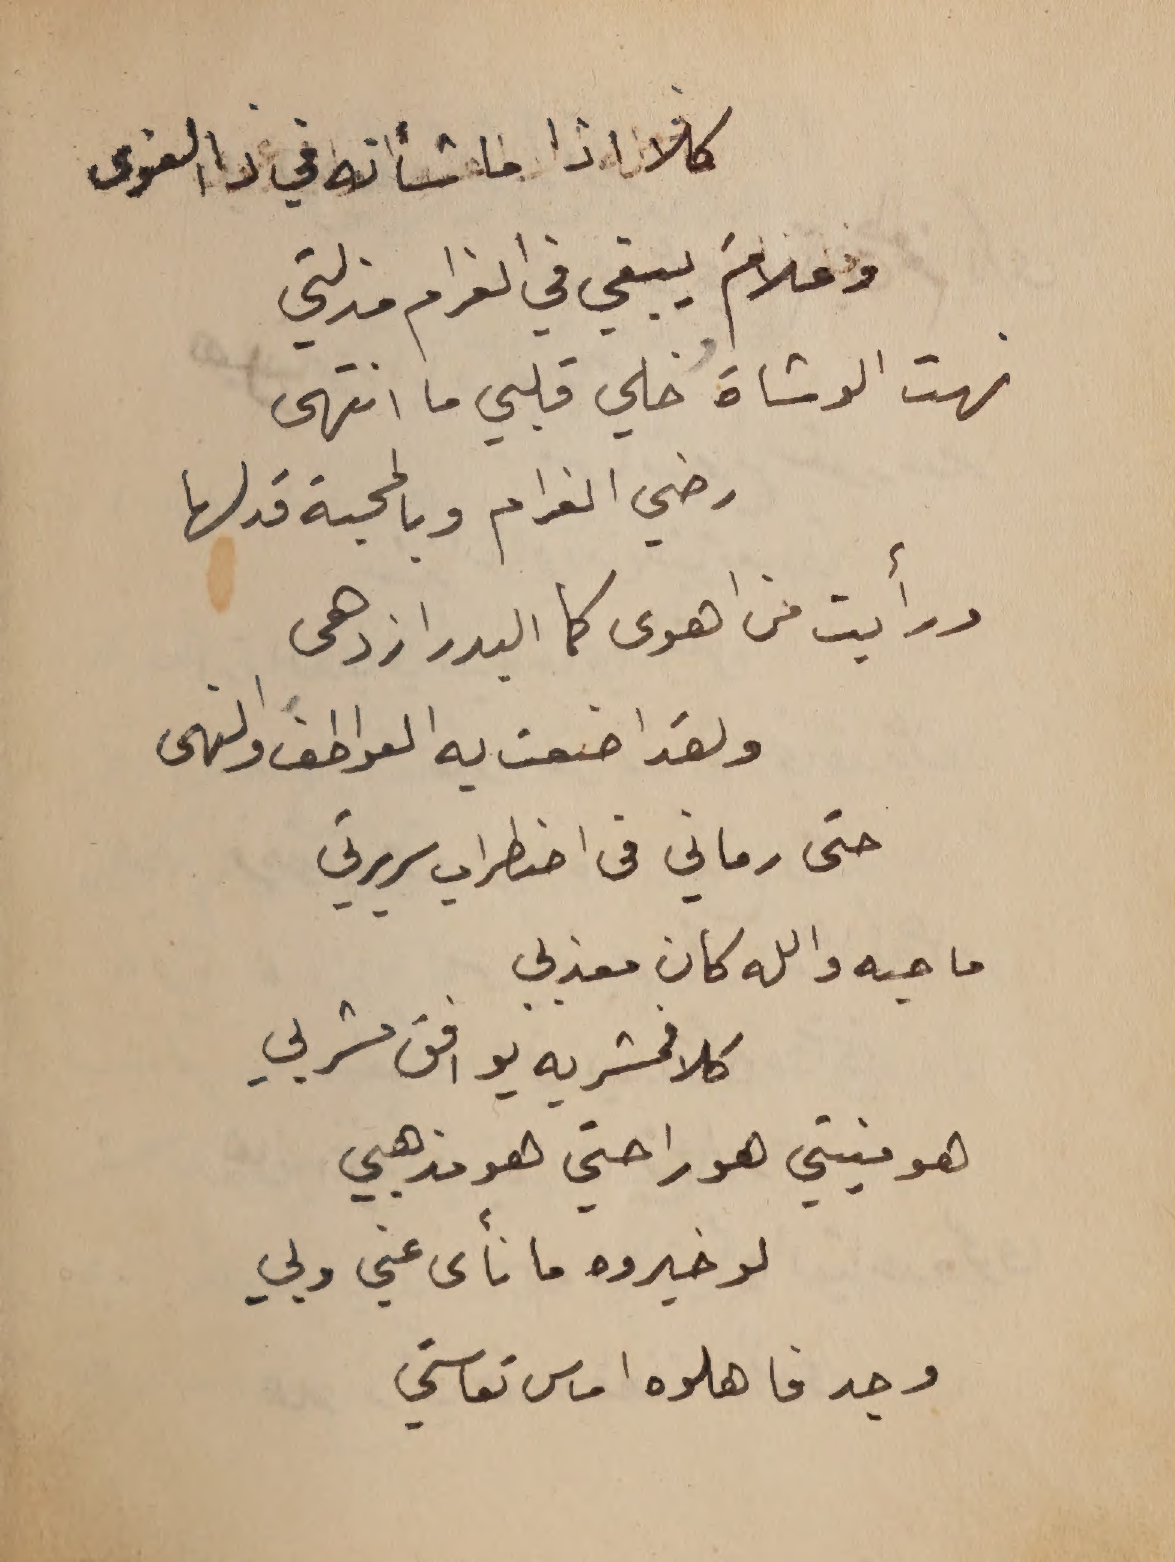 كلا اذا ما شأنه في ذا القوى
وعلام يبقي في الغرام مذلتي
نهت الوشاة خلي قلبي ما انتهى
رضي الغرام وبالمحبة قد لها
ورأيت من اهوى كما البدر ازدهى
ولقد اضعت به العواطف والنهى
حتى رماني في اضطراب سريرتي
ما حبه والله كان معذبي
كلا فمشربه يوافق مشربي
هو منيتي هو راحتي هو مذهبي
لو خيروه ما نأى عني وبي
وجد فاهلوه اساس تعاستي